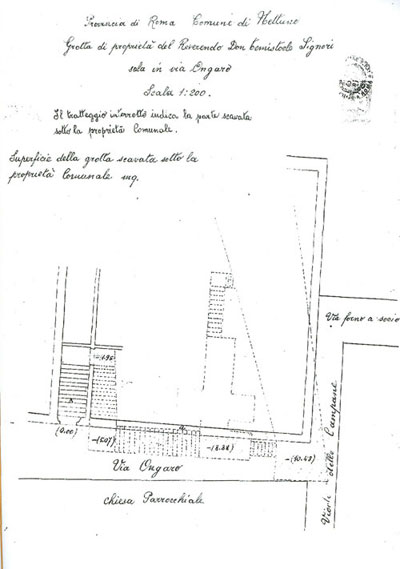 Provincia di Roma Comune di Nettuno
Grotta di proprietà del Reverendo Don Temistocle Signori
sola in via Ongaro
Scala 1:200.
Il tratteggio interrotto indica la parte scavata
sotto la proprietà Comunale.
Superficie della grotta scavata sotto la
proprietà Comunale mq.
Via forno a soccio
(0.00)
-(8.88)
-(10.48)
Via Ongaro
Chiesa Parrocchiale
Vicolo delle Campane